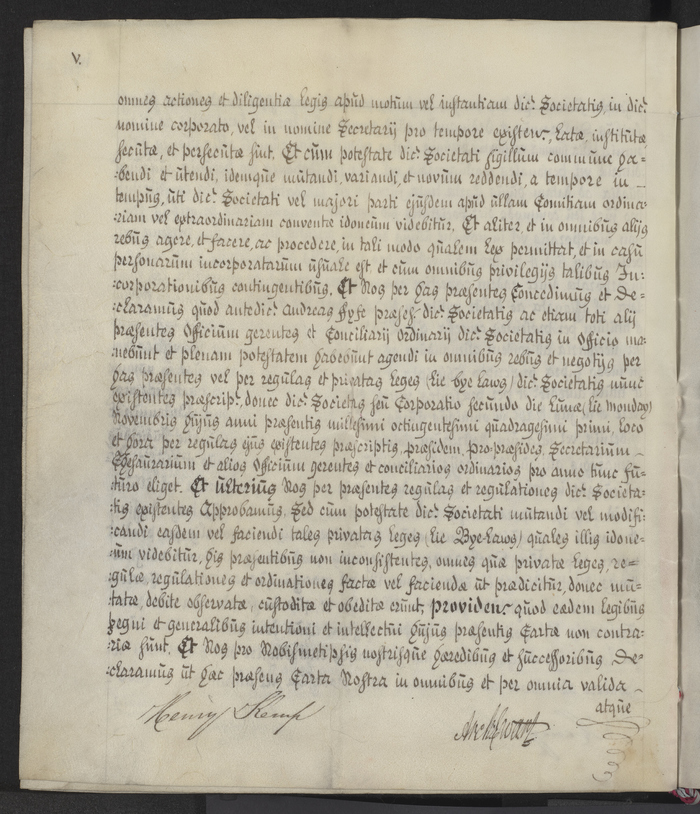 V.
omnes actiones et diligentiæ legis apud motum vel instantiam dict. Societatis, in dict.
nomine corporato, vel in nomine Secretarij pro tempore existen., latæ, institutæ,
secutæ, et persecutæ sint. Et cum potestate dict. Societati sigillum commune ha-
:bendi et utendi, idemque mutandi, variandi, et novum reddendi, a tempore in
tempus, uti dict. Societati vel majori parti ejusdem apud ullam Comitiam ordina:
:riam vel extraordinariam conventæ idoneum videbitur. Et aliter, et in omnibus alijs
rebus agere, et facere, ac procedere, in tali modo qualem lex permittat, et in casu
personarum incorporatarum usuale est, et cum omnibus privilegijs talibus In:
:corporationibus contingentibus. Et Nos per has præsentes Concedimus et De-
:claramus quod antedict. Andreas Fyfe præses dict. Societatis ac etiam toti alij
præsentes Officium gerentes et Conciliarij Ordinarij dict. Societatis in Officio ma:
:nebunt et plenam potestatem habebunt agendi in omnibus rebus et negotijs per
has præsentes vel per regulas et privatas leges (lie bye Laws) dict. Societatis nunc
existentes præscript., donec dict. Societas seu Corporatio secundo die Lunæ (lie Monday)
Novembris hujus anni præsentis millesimi octingentesimi quadragesimi primi, loco
et hora per regulas ejus existentes præscriptis, præsidem, pro-præsides, Secretarium
Thesaurarium et alios Officium gerentes et conciliarios ordinarios pro anno tunc fu-
:turo eliget. Et ulterius Nos per præsentes regulas et regulationes dict. Societa-
:tis existentes Approbamus. Sed cum potestate dict. Societati mutandi vel modifi:
:candi easdem vel faciendi tales privatas leges (lie Bye-Laws) quales illis idone-
:um videbitur, his præsentibus non inconsistentes, omnes quæ privatæ leges, re-
:gulæ, regulationes et ordinationes factæ vel faciendæ ut prædicitur, donec mu-
:tatæ, debite observatæ, custoditæ et obeditæ erunt, providens quod eædem legibus
regni et generalibus intentioni et intellectui hujus præsentis Cartæ non contra-
:riæ sunt. Et Nos pro Nobismetipsis nostrisque hæredibus et successoribus De-
:claramus ut hæc præsens Carta Nostra in omnibus et per omnia valida
atque
Henry Kemp